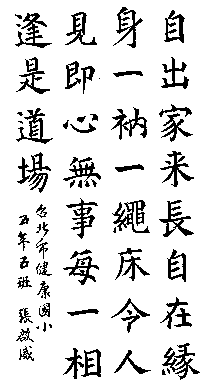 自出家来長自在緣
身一衲一繩床今人
見即心無事每一相
逢是道場
台北市健康國小
五年五班 張啟盛